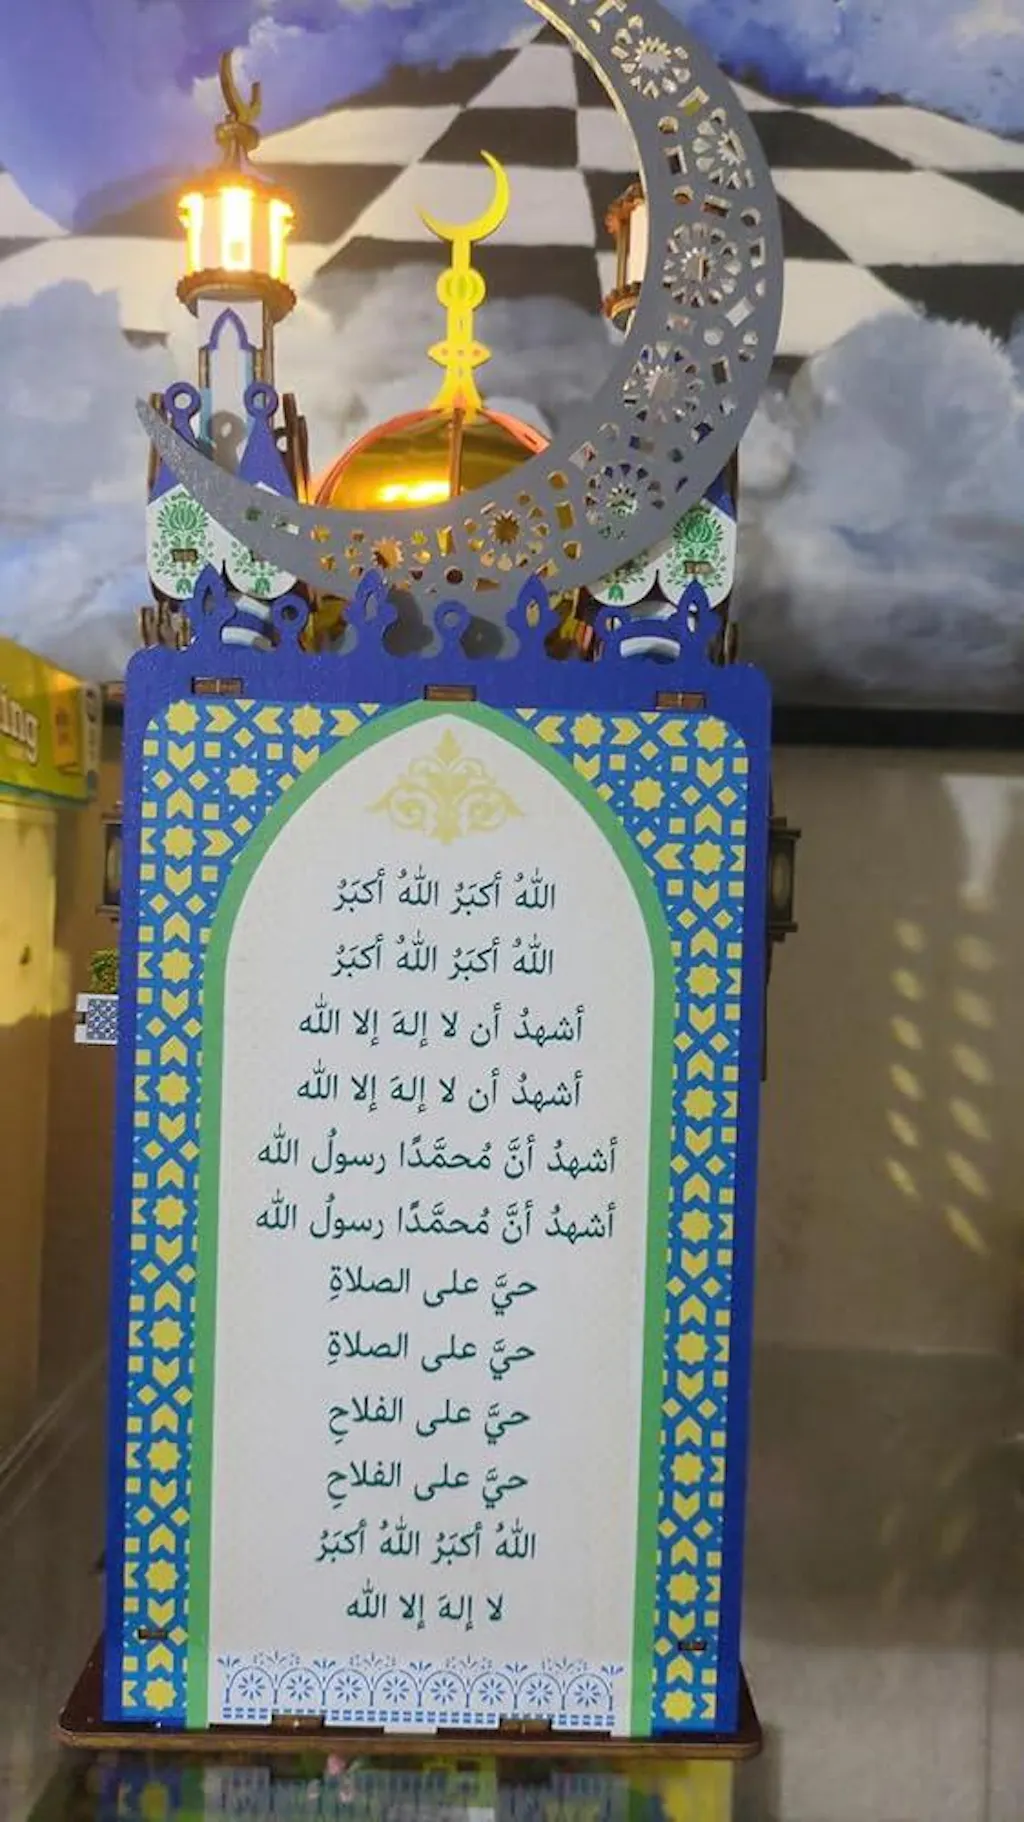 اللهُ أكبَرُ اللهُ أكبَرُ
اللهُ أكبَرُ اللهُ أكبَرُ
أشهدُ أن لا إلهَ إلا الله
أشهدُ أن لا إلهَ إلا الله
أشهدُ أنَّ مُحمَّدًا رسولُ الله
أشهدُ أنَّ مُحمَّدًا رسولُ الله
حيَّ على الصلاةِ
حيَّ على الصلاةِ
حيَّ على الفلاحِ
حيَّ على الفلاحِ
اللهُ أكبَرُ اللهُ أكبَرُ
لا إلهَ إلا الله